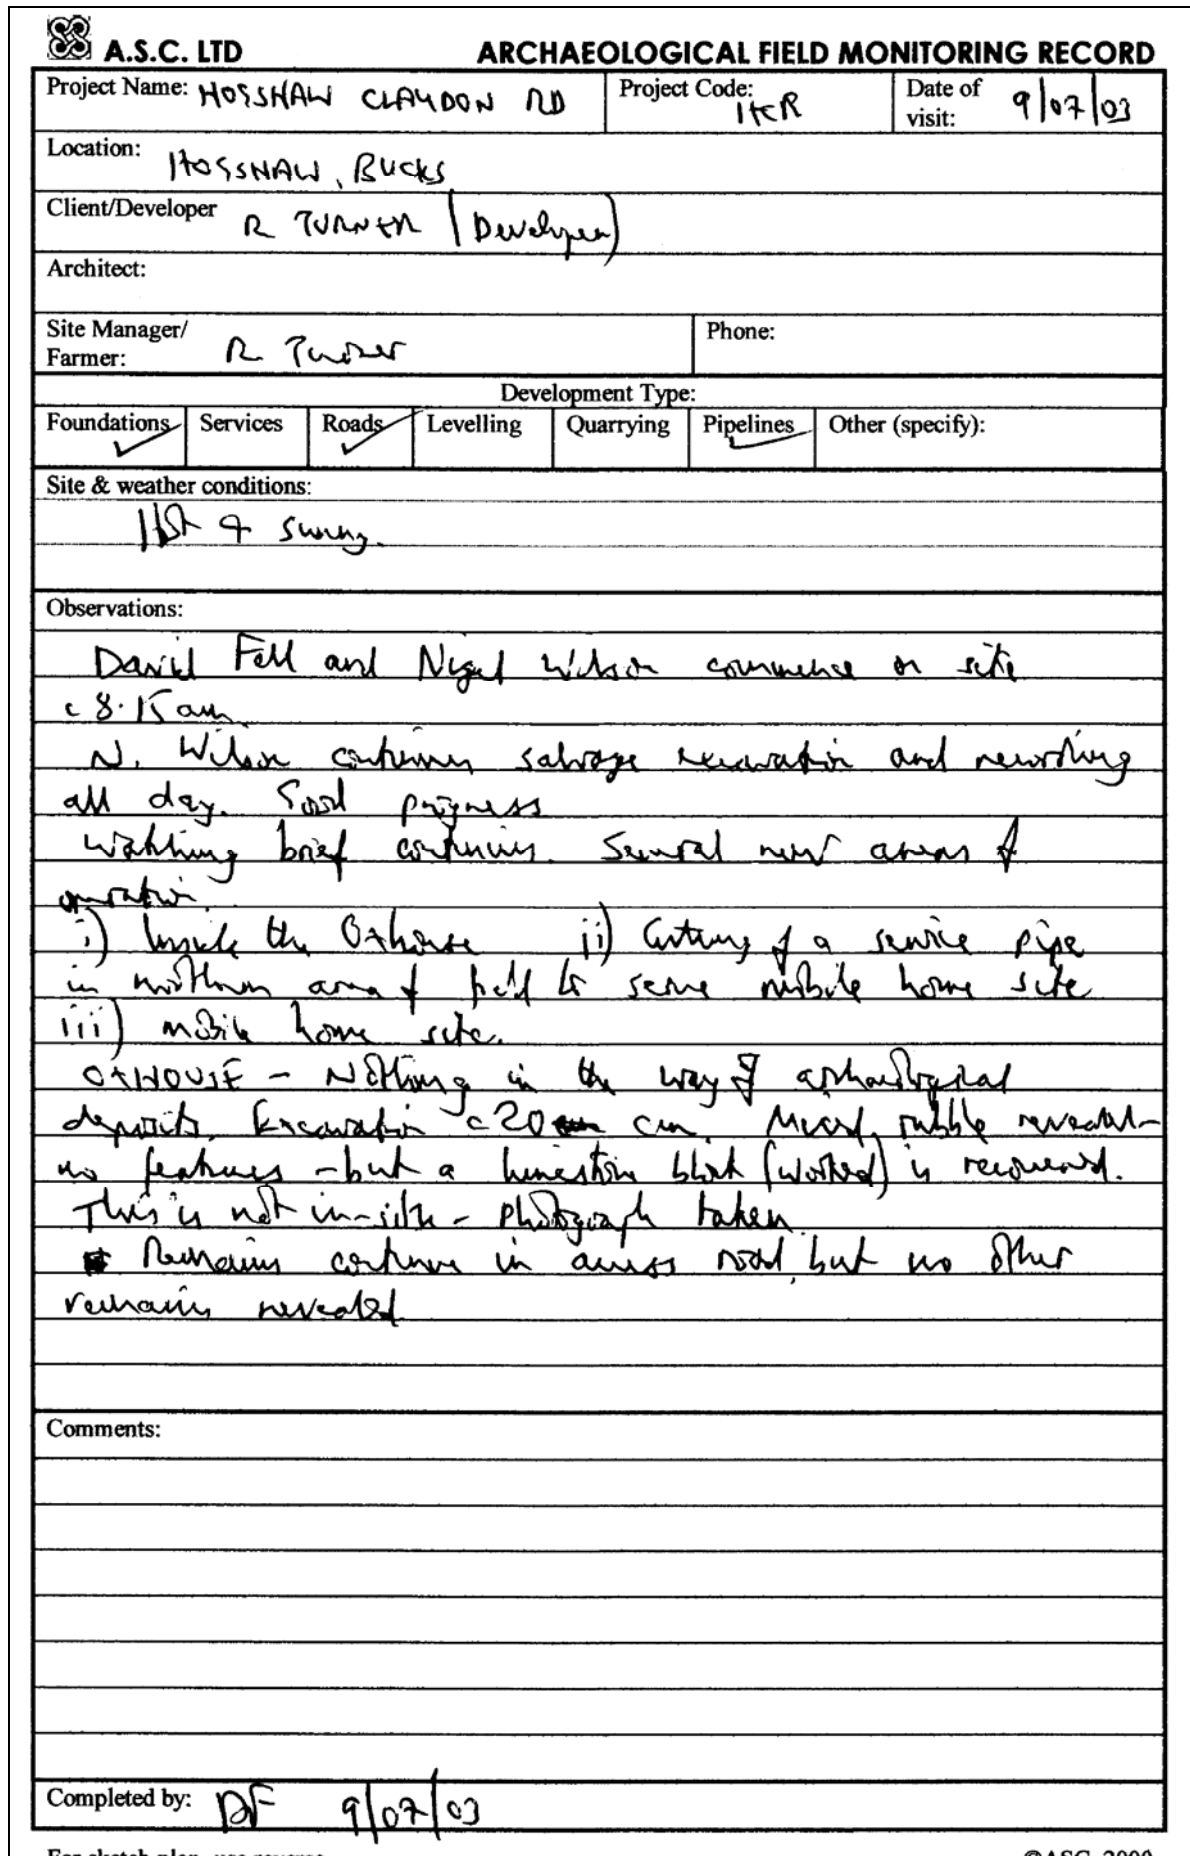 A.S.C. LTD ARCHAEOLOGICAL FIELD MONITORING RECORD
Project Name: HOGSHAW CLAYDON RD Project Code: HCR Date of visit: 9/07/03
Location: HOGSHAW, BUCKS
Client/Developer R TURNER (Developer)
Architect:
Site Manager/ Farmer: R. Turner Phone:
Development Type:
Foundations ✓ Services Roads ✓ Levelling Quarrying Pipelines ✓ Other (specify):
Site & weather conditions:
Hot & sunny.
Observations:
David Fell and Nigel Wilson commence on site
c 8.15am.
N. Wilson continues salvage excavation and recording
all day. Good progress
Watching brief continues. Several new areas of
operation.
i) Inside the Oxhouse ii) Cutting of a service pipe
in northern area of field to serve mobile home site
iii) mobile home site.
OXHOUSE - Nothing in the way of archaeological
deposits. Excavation c20 cm. Mixed rubble revealed -
no features - but a limestone block (worked) is recovered.
This is not in-situ - photograph taken
Remains continue in access road, but no other
remains revealed
Comments:
Completed by: DF 9/07/03
For sketch plan, use reverse ©ASC 2000